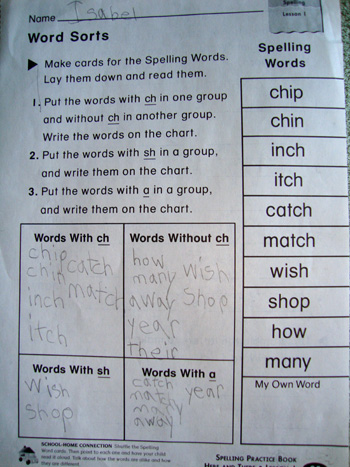 Name Isabel
Spelling
Lesson 1
Word Sorts
▶ Make cards for the Spelling Words.
Lay them down and read them.
1. Put the words with ch in one group
and without ch in another group.
Write the words on the chart.
2. Put the words with sh in a group,
and write them on the chart.
3. Put the words with a in a group,
and write them on the chart.
Spelling
Words
chip
chin
inch
itch
catch
match
wish
shop
how
many
My Own Word
Words With ch
chip
chin catch
inch match
itch
Words Without ch
how
many wish
away shop
year
their
Words With sh
wish
shop
Words With a
catch
match year
many
away
SCHOOL-HOME CONNECTION Shuffle the Spelling
Word cards. Then point to each one and have your child
read it aloud. Talk about how the words are alike and how
they are different.
SPELLING PRACTICE BOOK